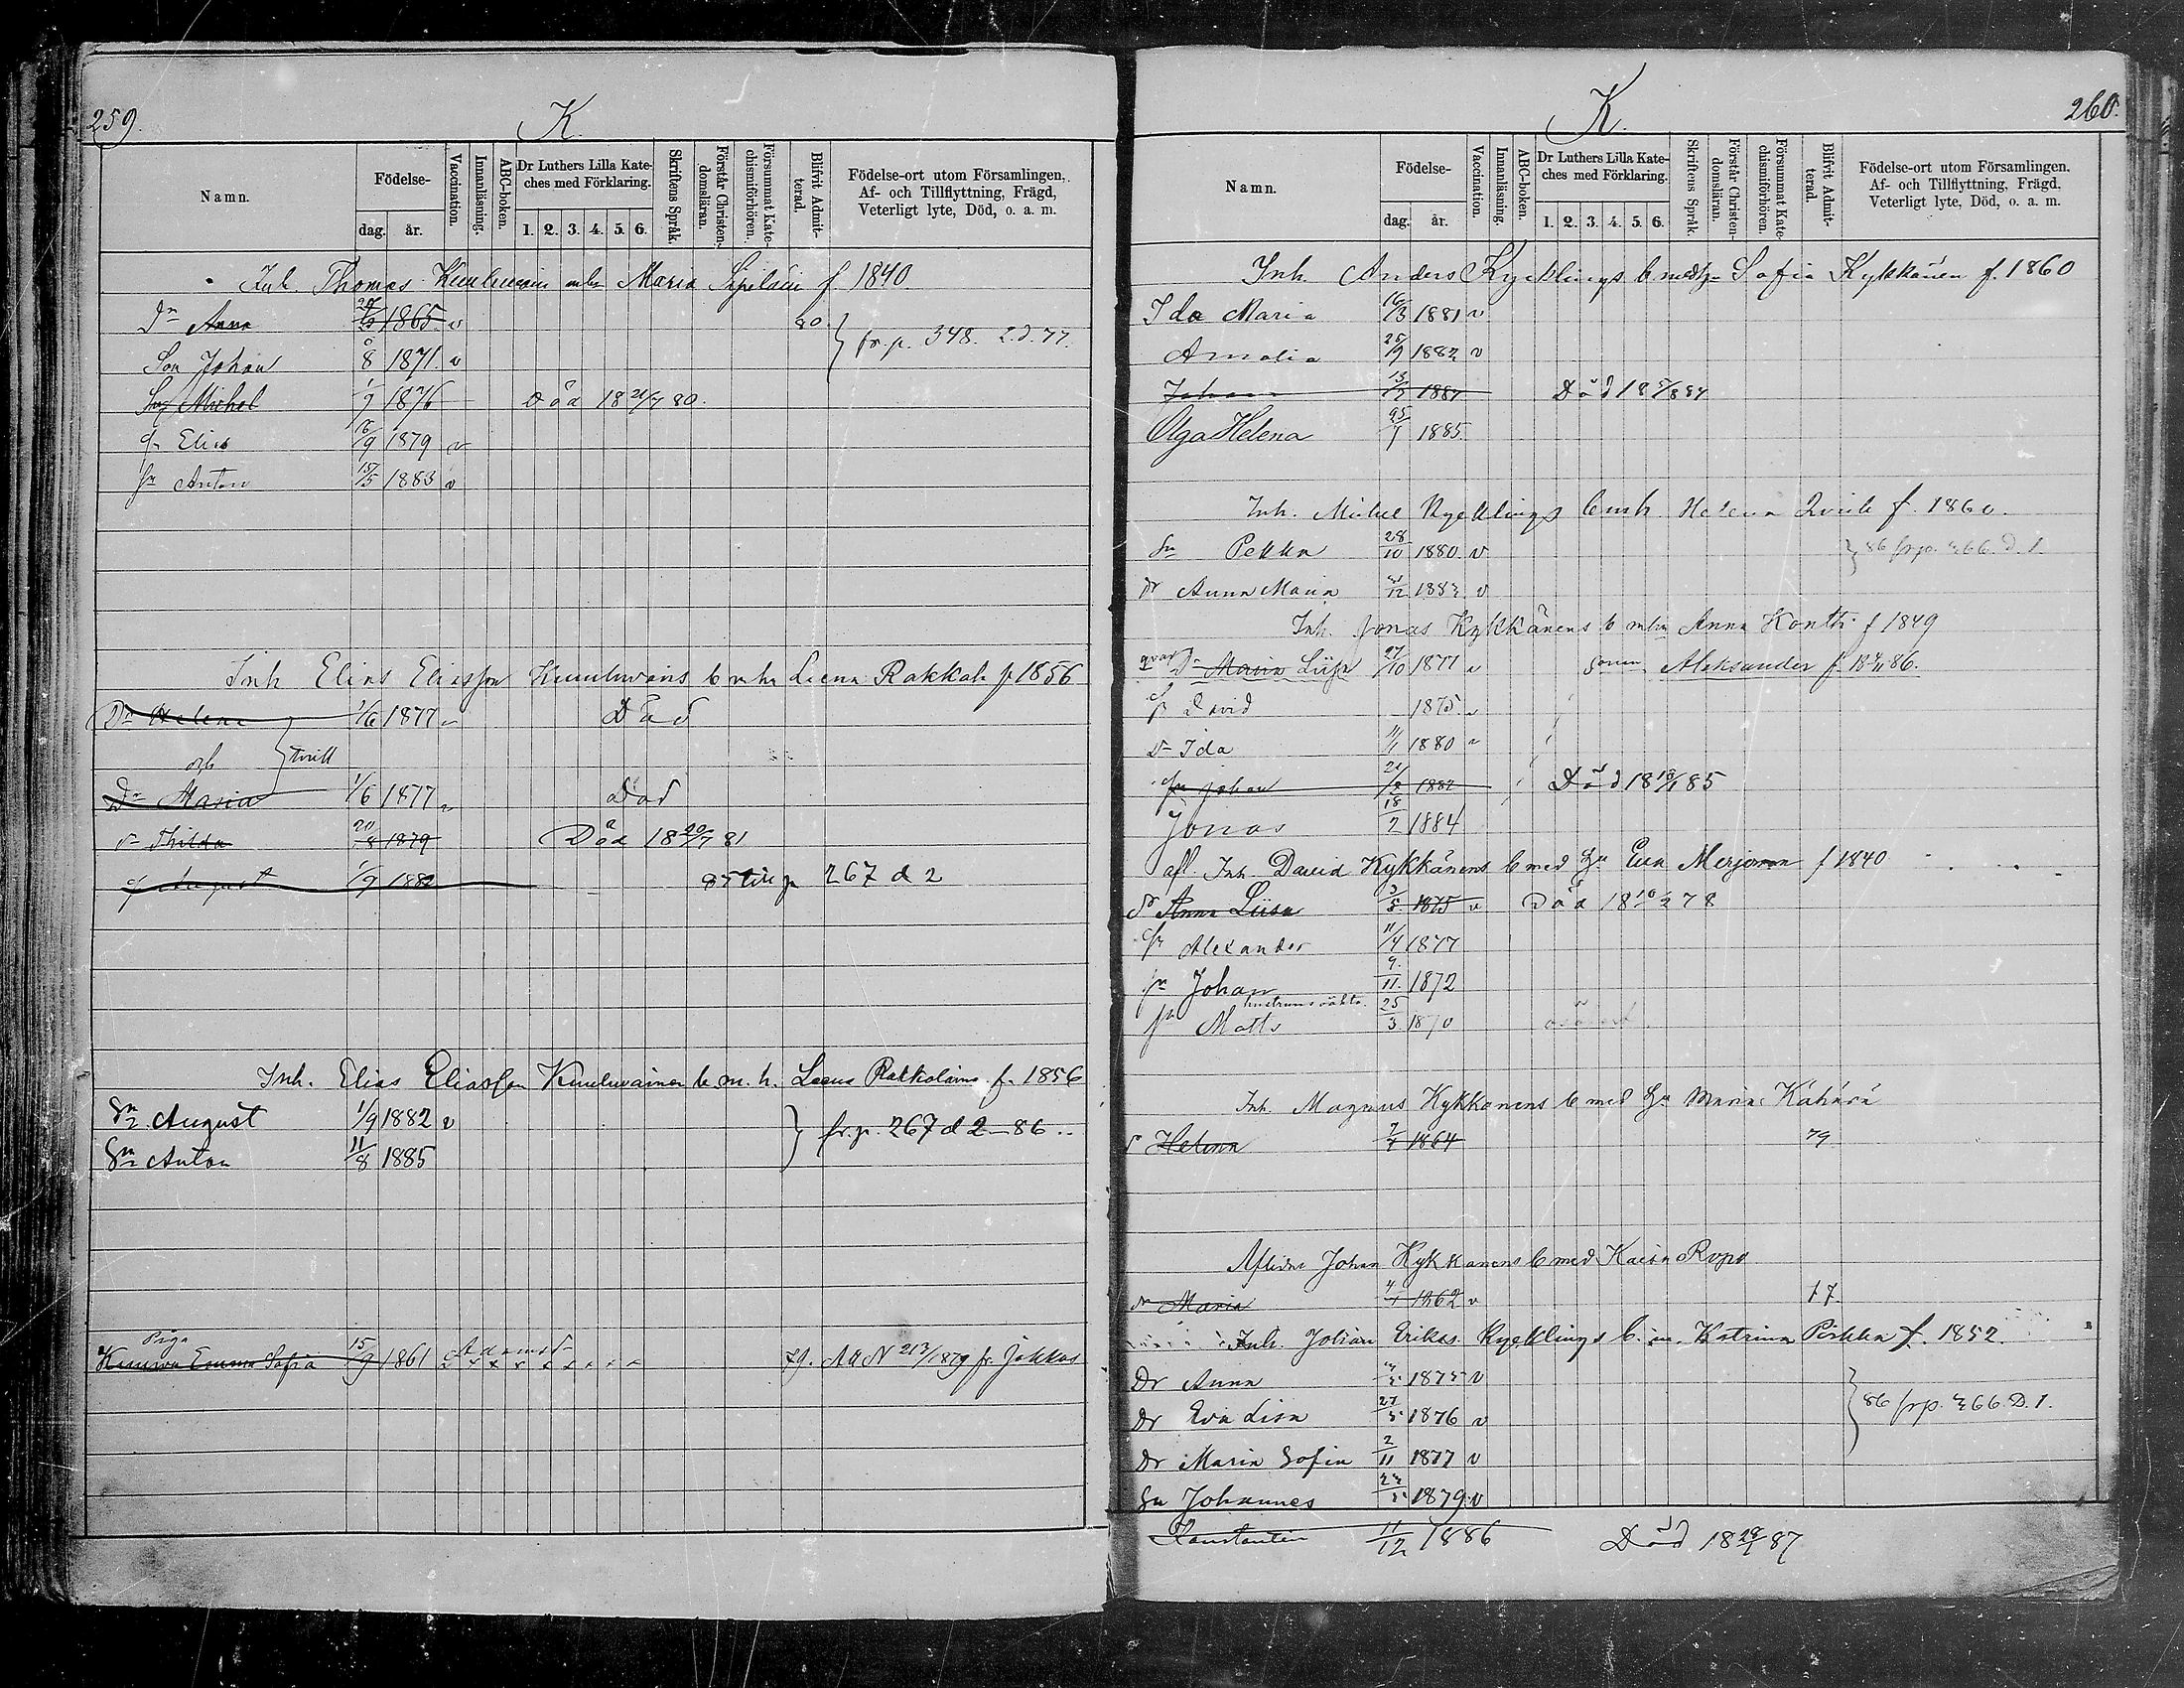 259.
K.
Namn.
Födelse-
dag.
år.
Vaccination.
Innanläsning.
ABC-boken.
Dr Luthers Lilla Kate-
ches med Förklaring.
1. 2. 3. 4. 5. 6.
Skriftens Språk.
Förstår Christen-
domsläran.
Försummat Kate-
chismiförhören.
Blifvit Admit-
terad.
Födelse-ort utom Församlingen,
Af- och Tillflyttning, Frägd,
Veterligt lyte, Död, o. a. m.
Inh. Thomas Maria f 1840
Dr Anna 1865 v 80
fr. p. 348. 2. d. 77.
Son Johan 8 1871 v
Son Michel 1/7 1876 Död 18 80.
Elias 1879 v
Sn Anton 15/5 1883 v
Inh Elias Eliasson b m hu Leena Rakkola f 1856
Dr Helena 1/6 1877 Död
och } tvill
Dr Maria 1/6 1877 Död
Dr Thilda 20/8 1879 Död 18 20/7 81
August 1/9 1882 85 till p 267 d 2
Inh. Elias Eliasson b. m. h. Leena f. 1856
Sn August 1/9 1882 v
fr. p. 267 d 2 - 86
Sn Anton 11/8 1885
Piga
Emma Sofia 15/9 1861 x x x x x x x x 79. Att N 213/1879 fr. Jokkas
260.
K.
Namn.
Födelse-
dag.
år.
Vaccination.
Innanläsning.
ABC-boken.
Dr Luthers Lilla Kate-
ches med Förklaring.
1. 2. 3. 4. 5. 6.
Skriftens Språk.
Förstår Christen-
domsläran.
Försummat Kate-
chismiförhören.
Blifvit Admit-
terad.
Födelse-ort utom Församlingen.
Af- och Tillflyttning, Frägd,
Veterligt lyte, Död, o. a. m.
Inh. Anders Kycklings b med hu Sofia Kykkänen f. 1860
Ida Maria 16/3 1881 v
Amalia 25/9 1882 v
Johan Död
Olga Helena 1885
Inh. Michel Kycklings b m h. Helena f. 1860.
Sn Pekka 28/10 1880. v
86 frp. 366. D. 1.
Dr Anna Maria v
Inh. Jonas Kykkänens b m hu Anna Kontti f 1849
qvar Dr Maria Liisa 27/10 1871 v Sonen Aleksander f. 86.
David 1875 v
Dr Ida 11/1 1880 v
Sn Johan 1882 Död 18 85
Jonas 18/2 1884
afl. Inh. David Kykkänens b med hu Eva f 1840
Dr Anna Liisa 1875 v Död 18 10/2 78
Sn Alexander 11/4 1877
Sn Johan 9/11 1872
Sn Matts 25/3 1870
Inh. Magnus Kykkänens b med hu Maria Kähärä
Dr Helena 1864 79
Aflidne Johan Kykkänens b med Kaisa Repo
Dr Maria 4/1 1862 v 77.
Inh. Johan Eriks. Kycklings b. m. Katrina Pirkka f. 1852.
Dr Anna 1875 v
Dr Eva Lisa 27/5 1876 v
86 frp. 366. D. 1.
Dr Maria Sofia 2/11 1877 v
Sn Johannes 1879 v
Konstantin 11/12 1886 Död 18 28/1 87